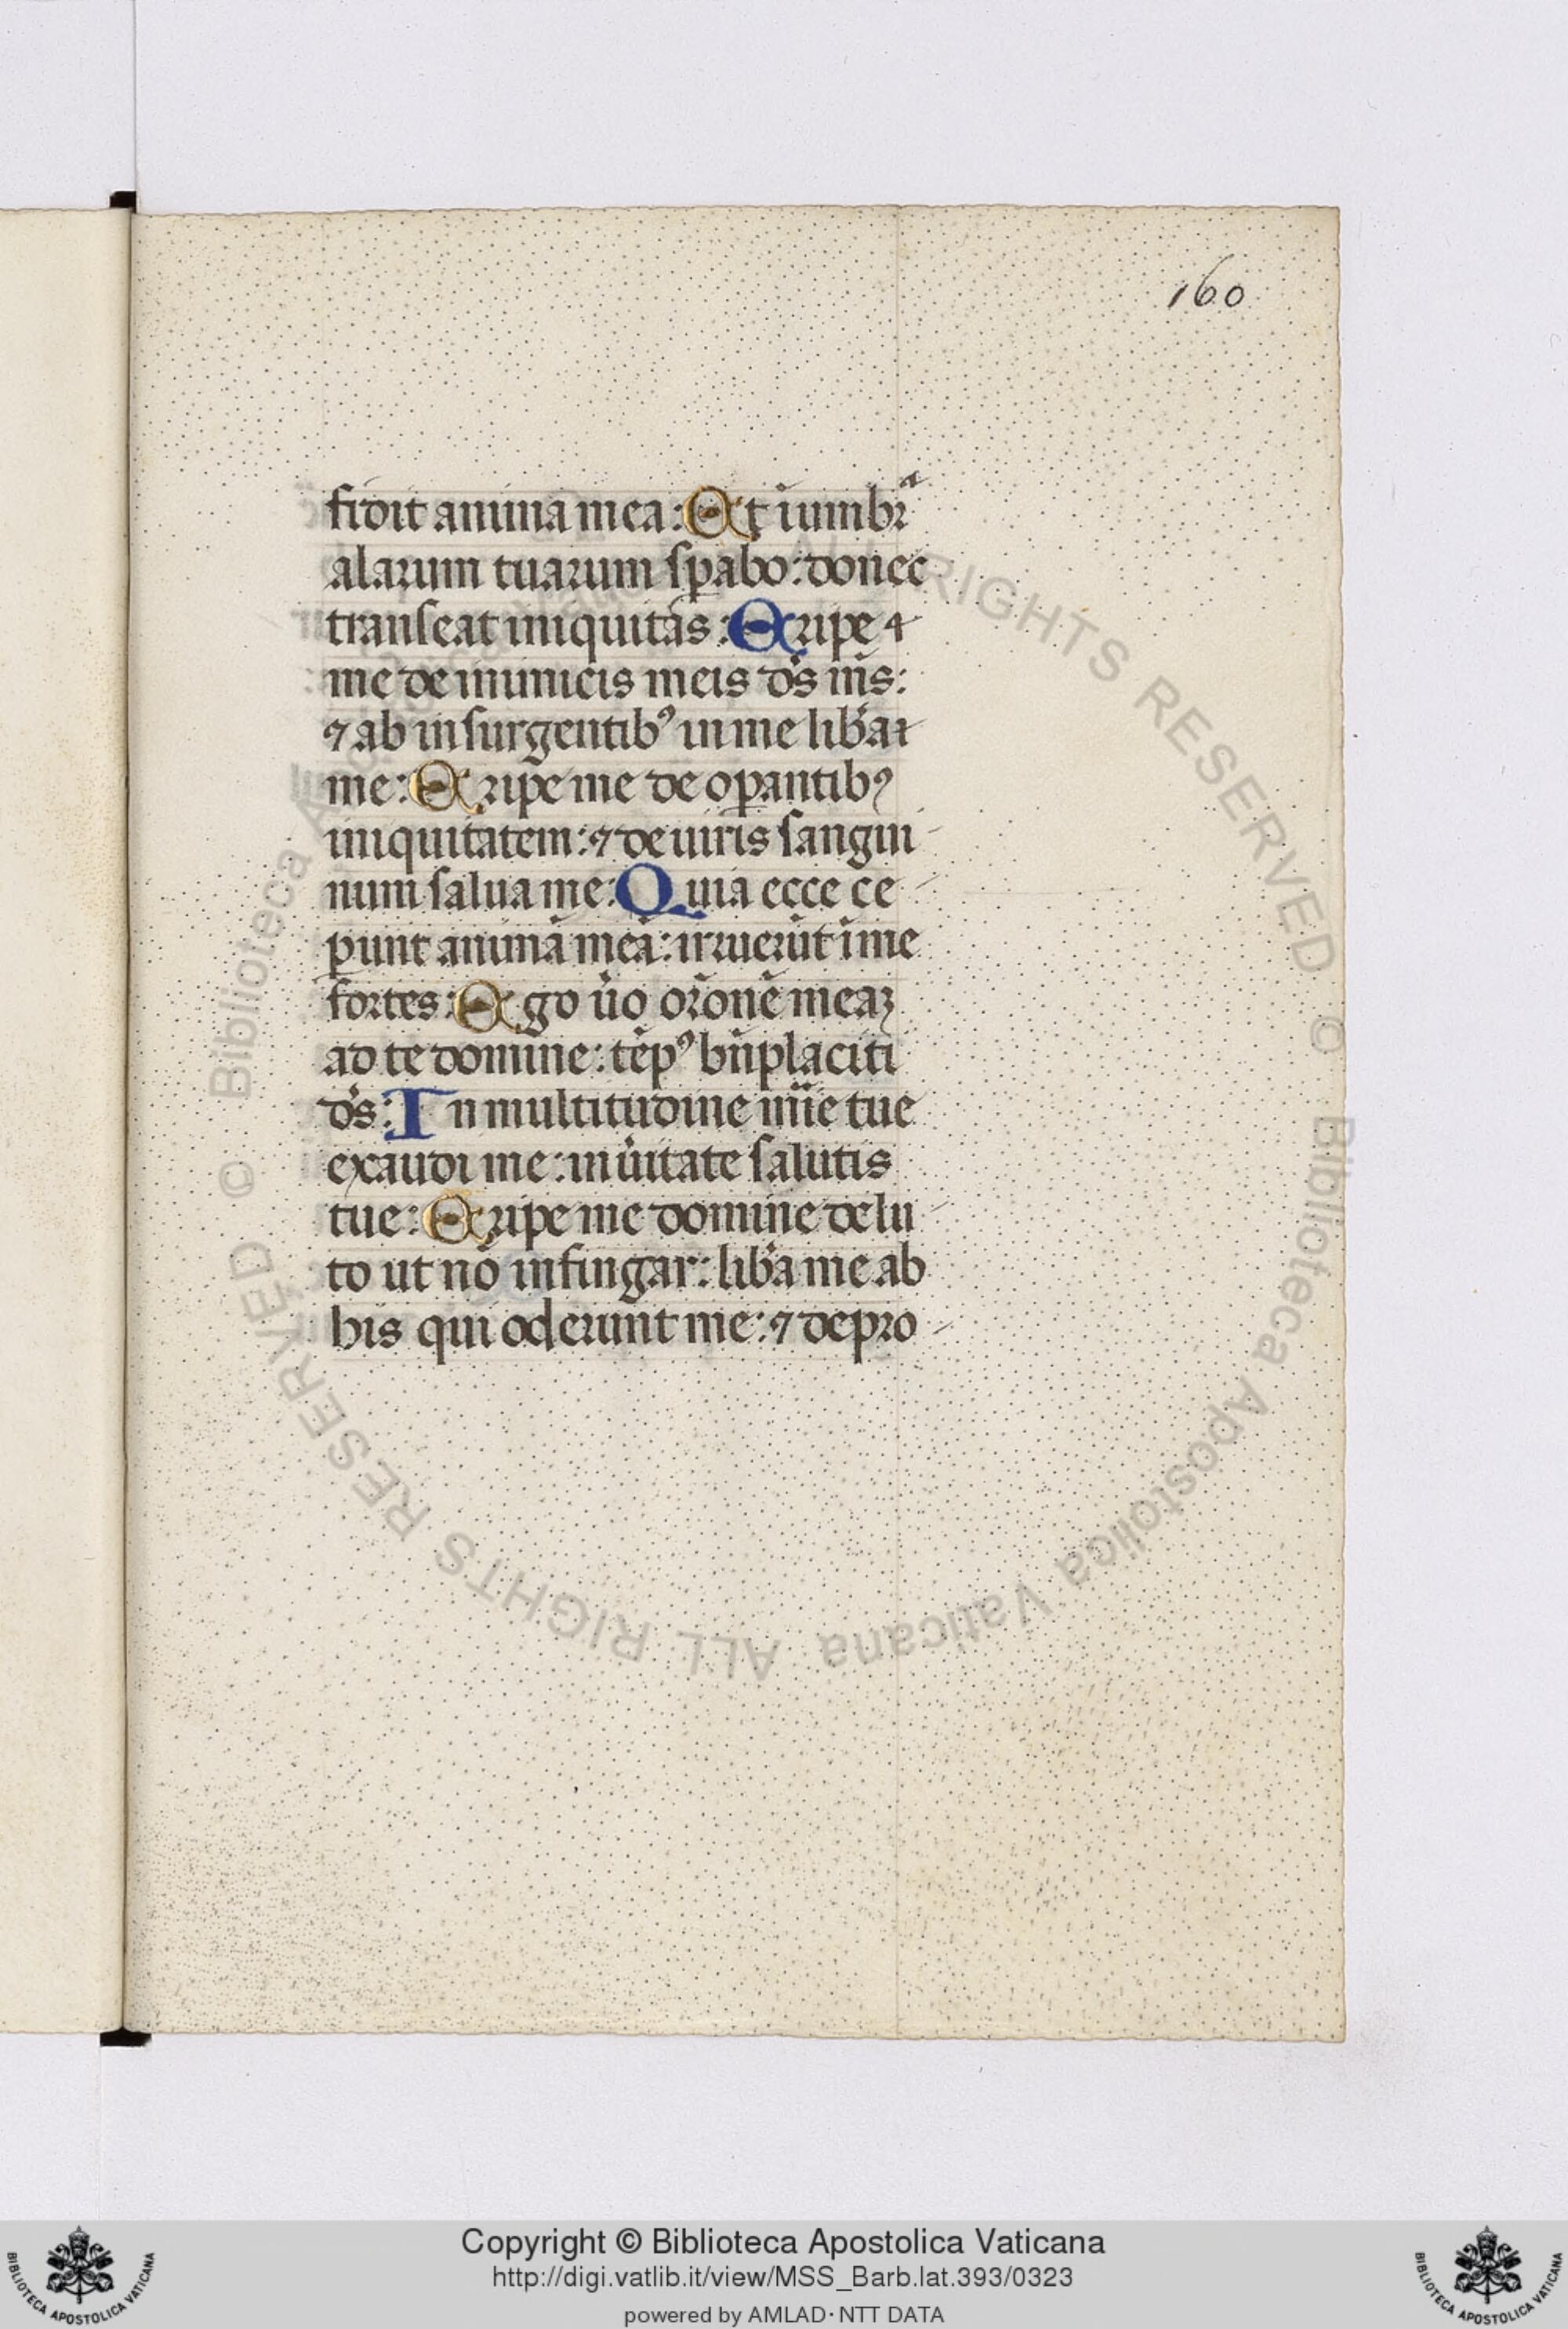 160
fidit anima mea: Et ı̄ umbrᵃ
alarum tuarum sꝑabo: donec
transeat iniquitas: Eripe
me de inimicis meis dꝰs nr̄s:
⁊ ab insurgentibꝰ in me libʼa
me: Eripe me de oꝑantibꝰ
iniquitatem: ⁊ de uiris sangui
num salua me: Quia ecce ce
ꝑunt animā meā: irruerūt ī me
fortes: Ego ūo orōnē meaꝫ
ad te domine: tēpꝰ bn̄placiti
ds̄: In multitudine mīe tue
exaudi me: in ūitate salutis
tue: Eripe me domine de lu
to ut nō infingar: libʼa me ab
his qui oderunt me: ⁊ de pro
© Biblioteca Apostolica Vaticana ALL RIGHTS RESERVED
© Biblioteca Apostolica Vaticana ALL RIGHTS RESERVED
Copyright © Biblioteca Apostolica Vaticana
http://digi.vatlib.it/view/MSS_Barb.lat.393/0323
powered by AMLAD·NTT DATA
BIBLIOTECA APOSTOLICA VATICANA
BIBLIOTECA APOSTOLICA VATICANA